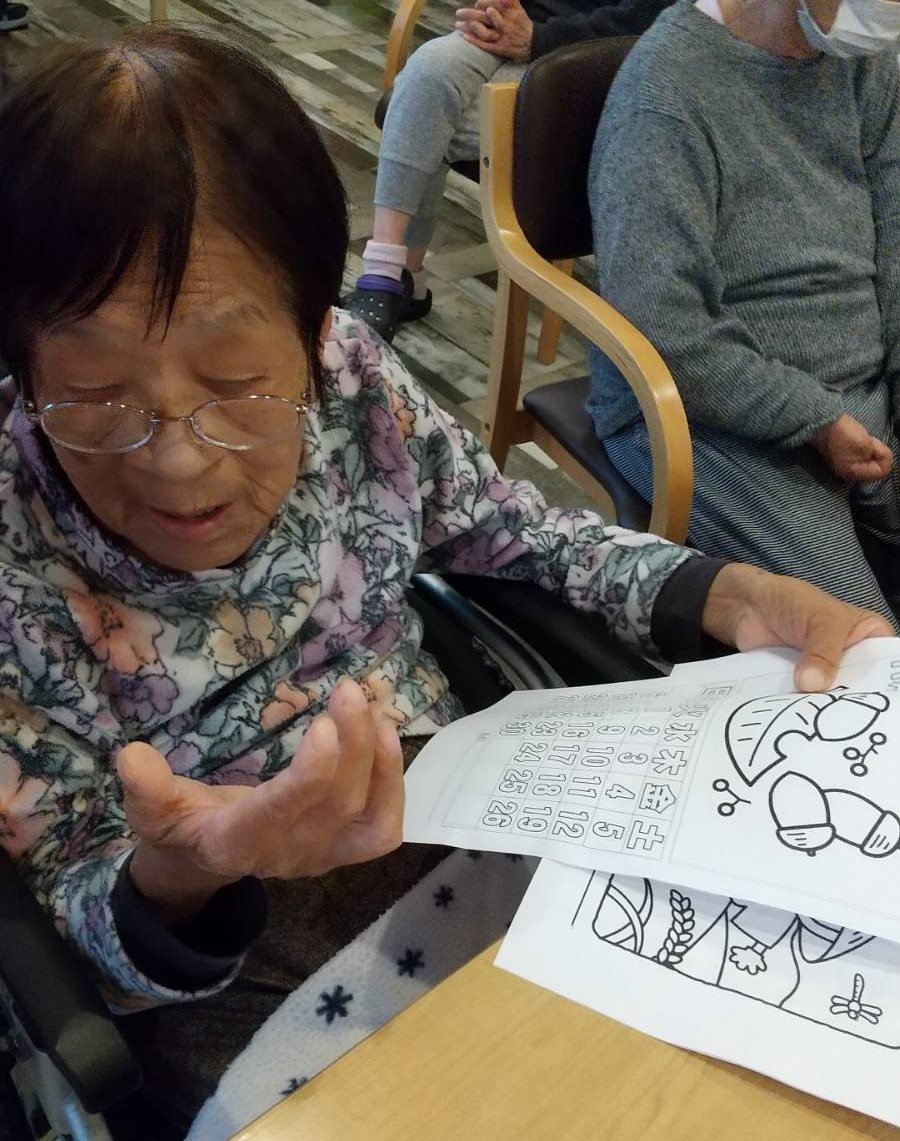 日 火 水 木 金 土
2 3 4 5
9 10 11 12
16 17 18 19
23 24 25 26
30